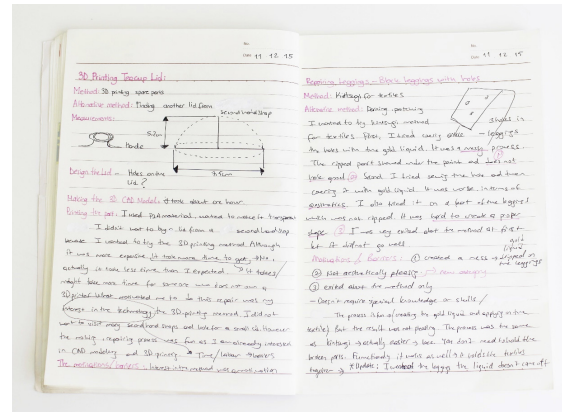 No.
Date 11 12 15
3D Printing Teacup Lid:
Method: 3D printing spare parts
Alternative method: Finding another lid from
second hand shop
Measurements:
Handle
Design the Lid → Holes on the
Lid?
Making the 3D CAD Model: It took about one hour
Printing the part: I used PLA material, wanted to make it transparent
I didn't want to buy a lid from a second hand shop
because I wanted to try the 3D printing method. Although
it was more expensive it took more time to get this,
actually it took less time than I expected. → It takes/
might take more time for someone who does not own a
3D printer. What motivated me to do this repair was my
interest in the technology, the 3D printing method. I did not
want to visit many second hand shops and look for a small lid. However
the making, repairing process was fun as I am already interested
in CAD modeling and 3D printing → Time/labour → barriers
The motivations/barriers: Interest in the method was a motivation
No.
Date 11 12 15
Repairing Leggings - Black leggings with holes
Method: Kintsugi for textiles
Alternative method: Darning, patching
I wanted to try kintsugi method
for textiles. First, I tried covering → leggings
the holes with the gold liquid. It was a messy process.
The ripped part showed under the paint and does not
look good. Second I tried sewing the hole and then
covering it with gold liquid. It was worse in terms of
aesthetics. I also tried it on a part of the leggings
which was not ripped. It was hard to create a proper
shape. I was very excited about the method at first
but it did not go well
gold
liquid
Motivations/barriers: ① created a mess → dripped on
the leggings
② Not aesthetically pleasing → new category
③ excited about the method only
– Doesn't require special knowledge or skills/
The process is fun of creating the gold liquid and applying on the
textile/ but the result was not pleasing. The process was the same
as kintsugi → actually easier → because You don't need to hold the
broken parts. Functionally it works as well → it holds the textiles
together → *Update: I washed the leggings the liquid doesn't come off